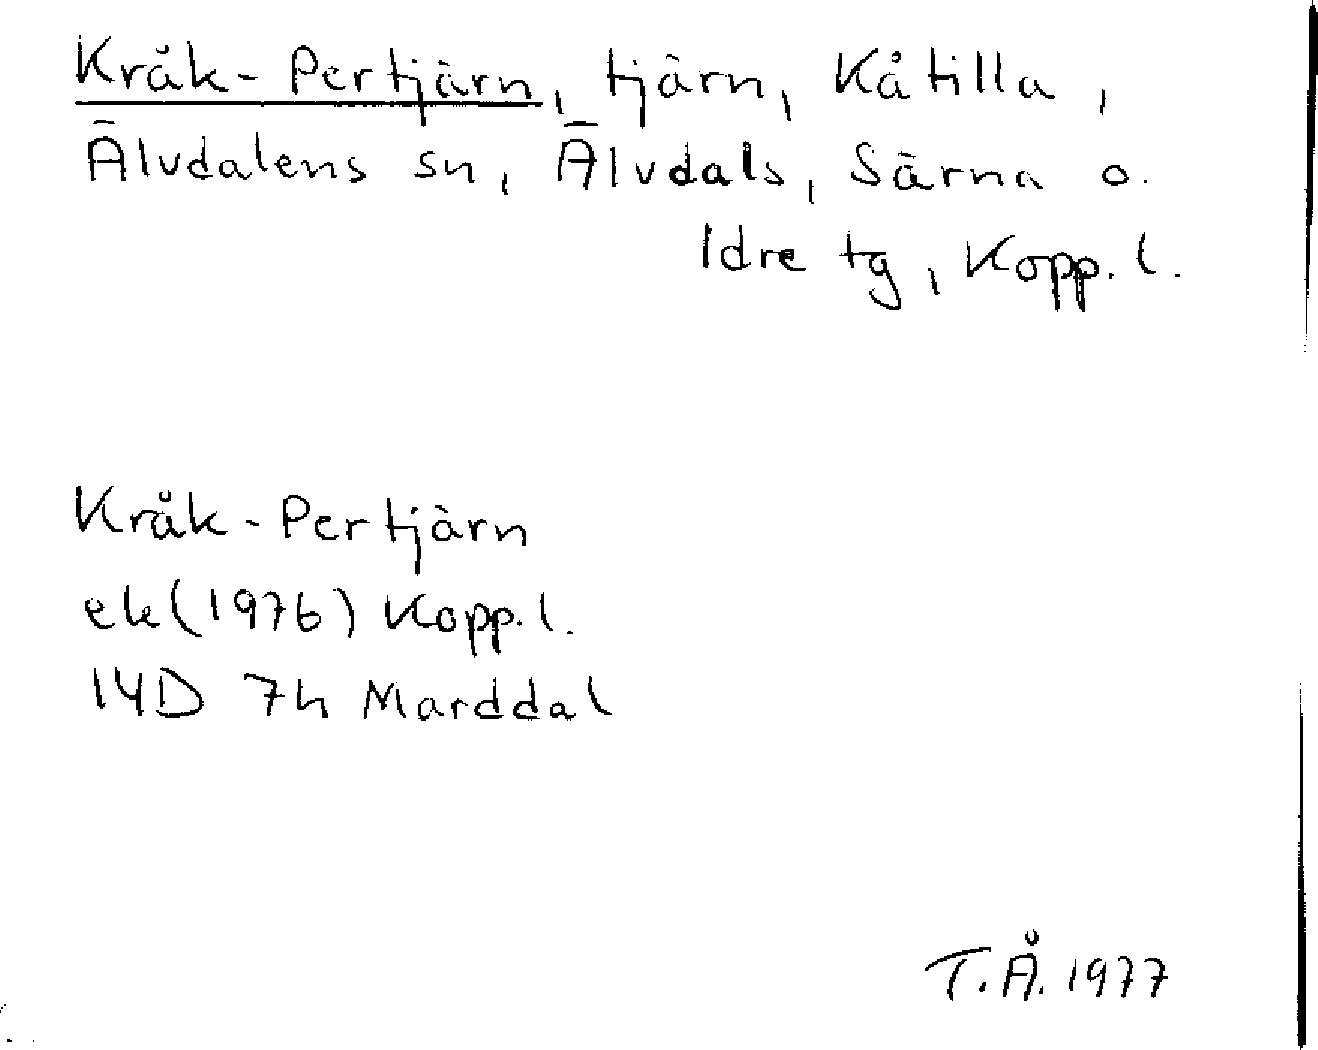 Kråk-Pertjärn, tjärn, Kåtilla,
Älvdalens sn, Älvdals, Särna o.
Idre tg, Kopp. l.
Kråk-Pertjärn
ek(1976) Kopp. l.
14D 7h Marddal
T.Å. 1977